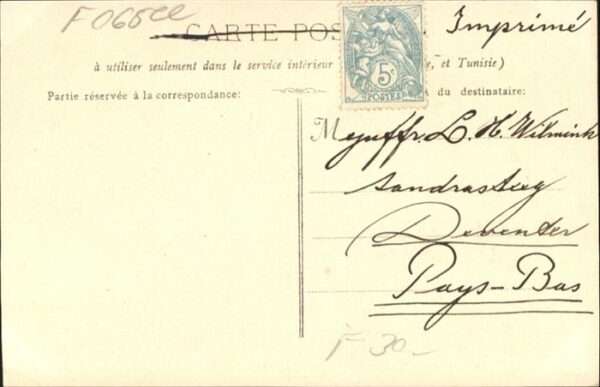 F 065cc
CARTE POS Imprimé
à utiliser seulement dans le service intérieur e, et Tunisie)
5c
POSTES
Partie réservée à la correspondance: du destinataire:
Mejuffr. L. H. Wilmink
Sandrasteeg
Deventer
Pays-Bas
F 30-